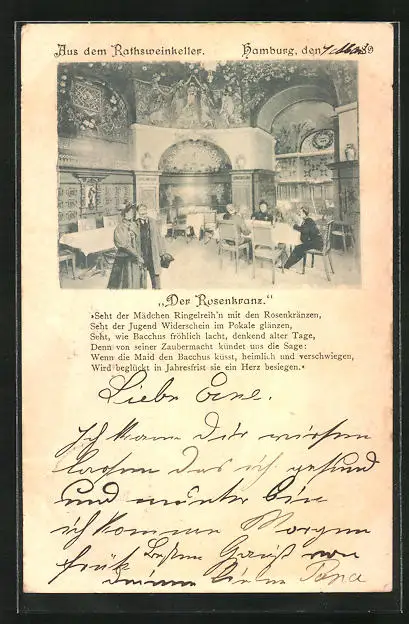 Aus dem Rathsweinkeller. Hamburg, den
„Der Rosenkranz."
›Seht der Mädchen Ringelreih'n mit den Rosenkränzen,
Seht der Jugend Widerschein im Pokale glänzen,
Seht, wie Bacchus fröhlich lacht, denkend alter Tage,
Denn von seiner Zaubermacht kündet uns die Sage:
Wenn die Maid den Bacchus küsst, heimlich und verschwiegen,
Wird beglückt in Jahresfrist sie ein Herz besiegen.‹
Liebe
Ich kann dir wissen
lassen das ich gesund
und munter bin
ich komme Morgen
früh Besten Gruß von
deinem lieben Papa